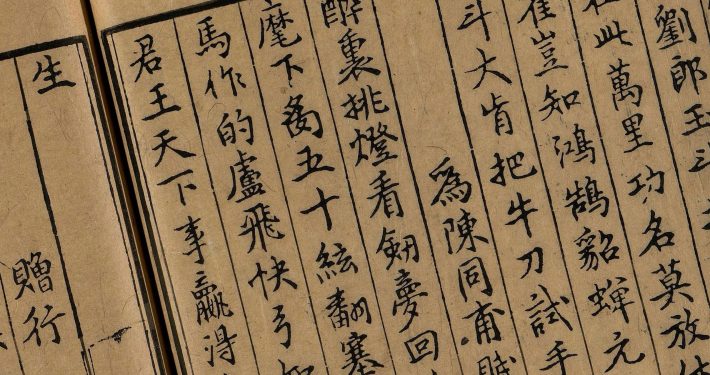 劉郎玉斗
此萬里功名莫放
崔豈知鴻鵠貂蟬元
斗大肯把牛刀試手
爲陳同甫賦
醉裏挑燈看劍夢回
麾下㕙五十絃翻塞
馬作的盧飛快弓
君王天下事贏得
生
贈行